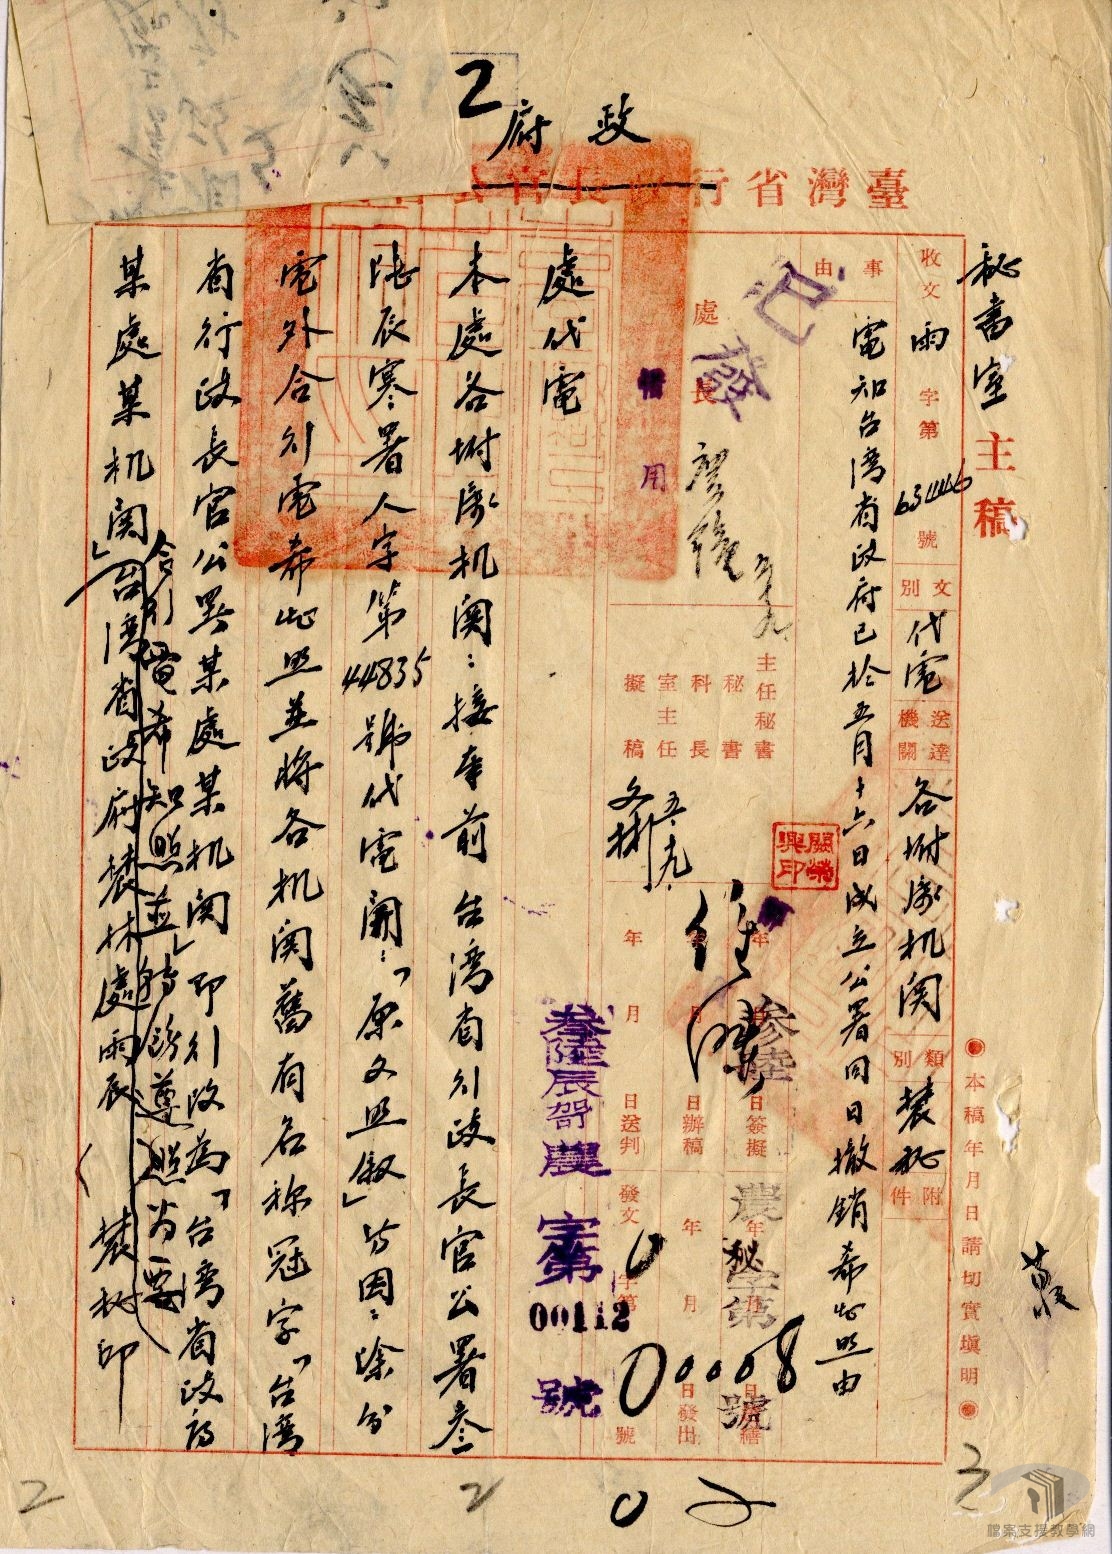 2
政府
臺灣省行
秘書室 主稿
收文 雨 字第 63446 號
文別 代電
送達機關 各附屬机関
類別 農秘
附件
事由
電知台湾省政府已於五月十六日成立公署同日撤銷希知照由
已發
處長
借用
主任秘書
秘書
科長
室主任
擬稿
五九
關榮興印
年 月 日簽擬
年 月 日辦稿
年 月 日送判
年 月 日繕
年 月 日發出
發文 字第 號
參陸
農秘字第 00008 號
參陸辰 農 字第 00112 號
處代電
本處各附屬机関：接奉前台湾省行政長官公署叁
陸辰寒署人字第44835號代電開：「原文照敘」等因：除分
電外合行電希知照並將各机関舊有名称冠字「台湾
省行政長官公署某處某机関」即行改為「台湾省政府
某處某机関」台湾省政府農林處雨辰（ 農秘印
合行電希知照並轉飭遵照為要
本稿年月日請切實填明
2
2
02
檔案支援教學網